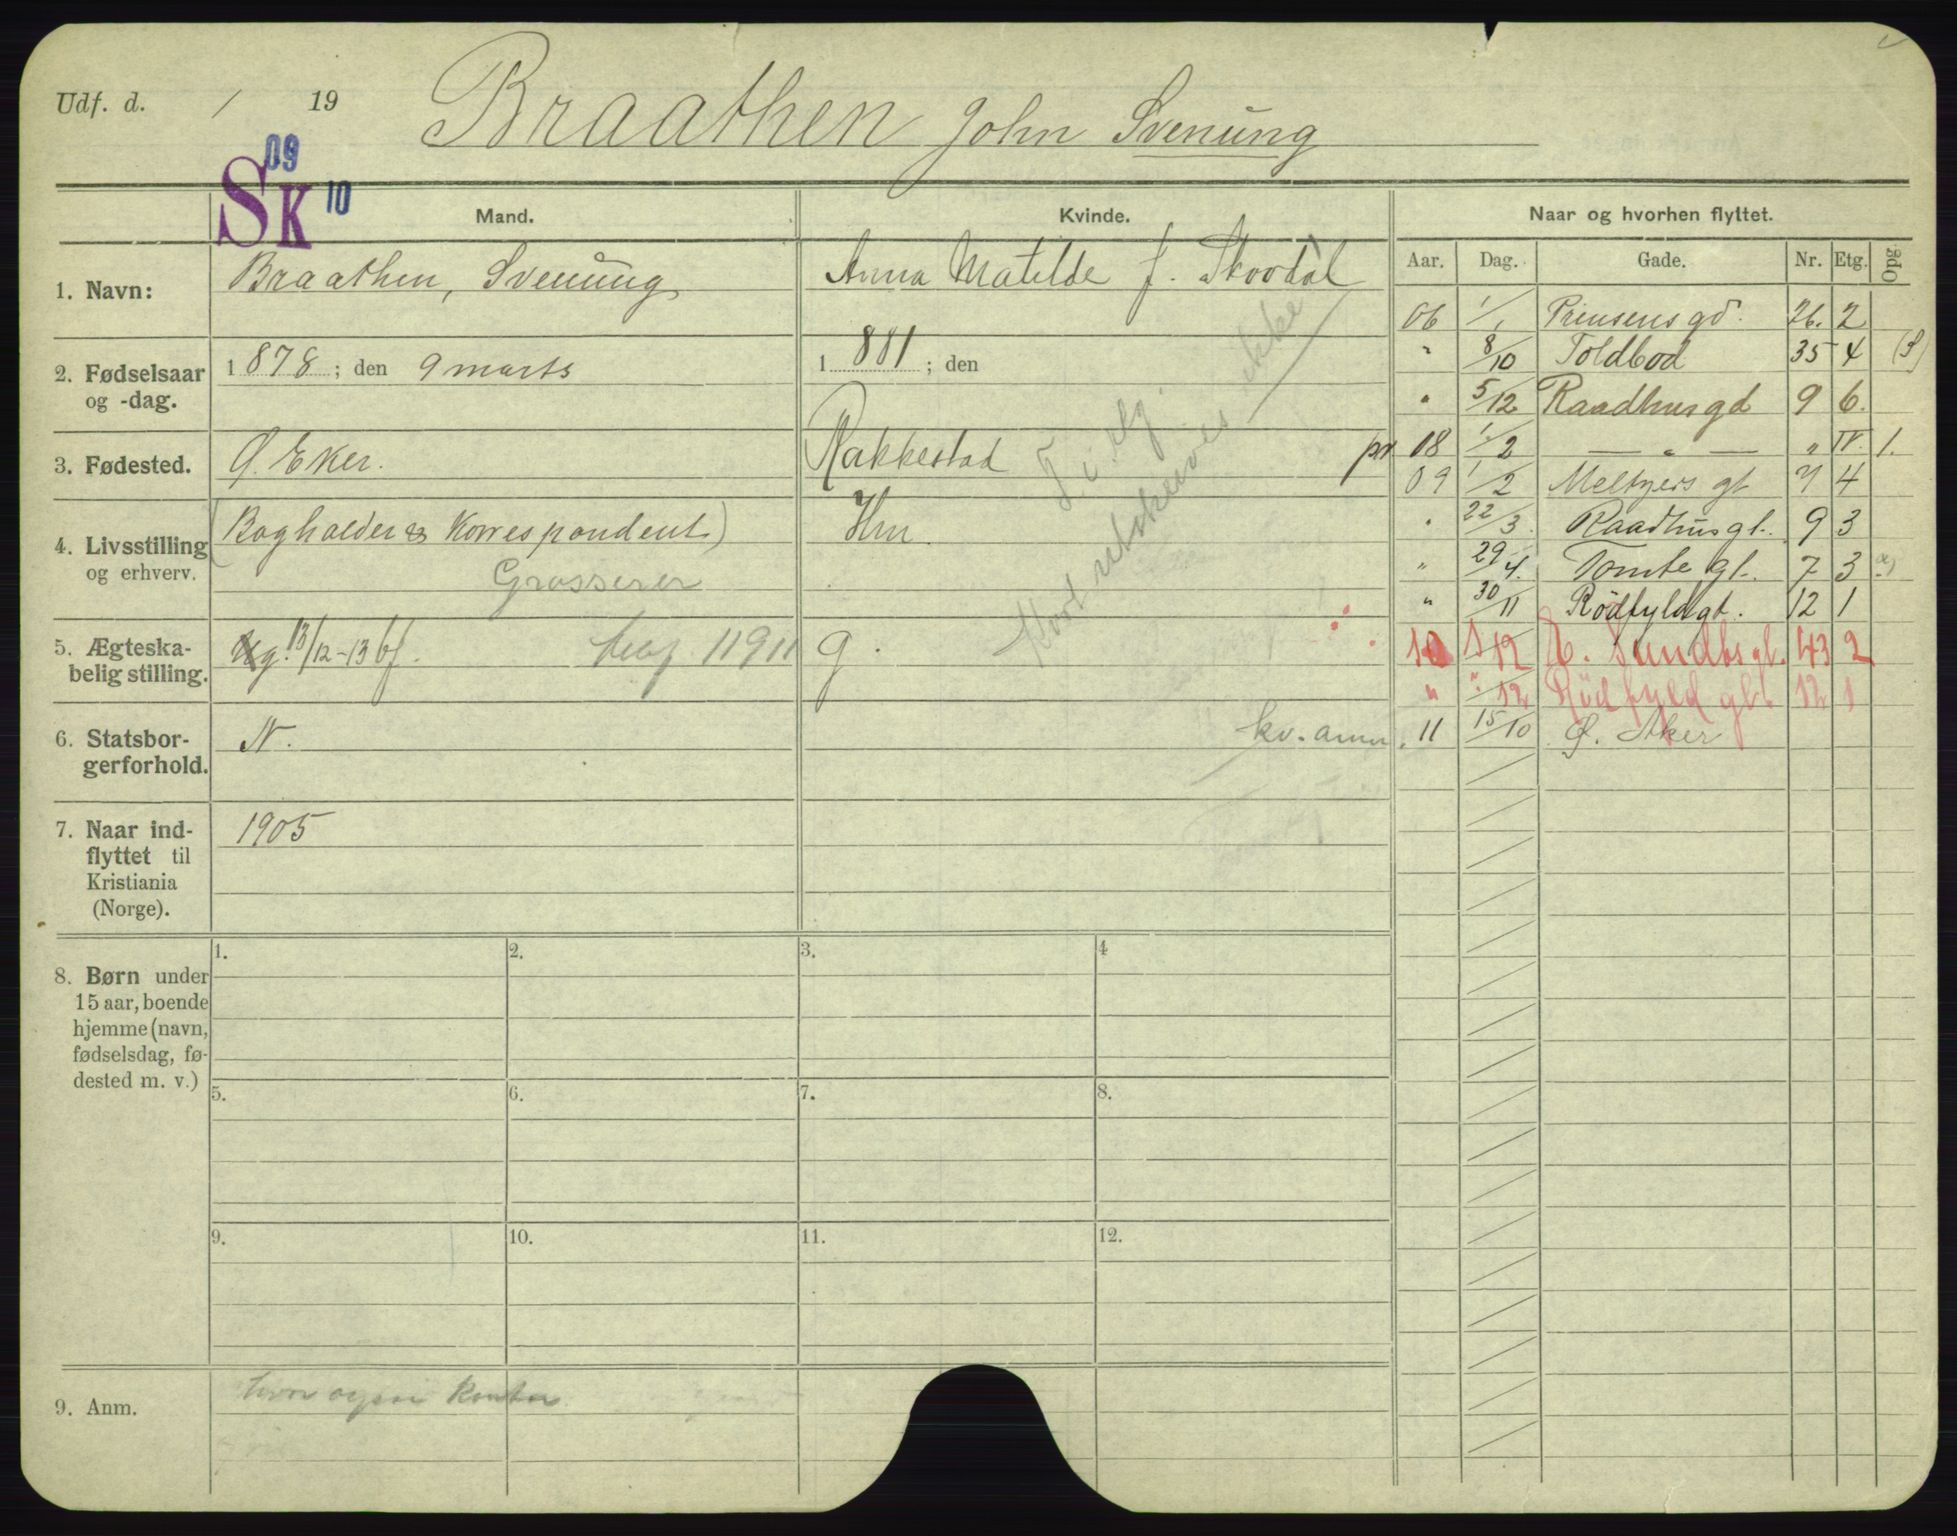 Udf. d. / 19 Braathen John Svenung
09
SK 10
Mand. Kvinde. Naar og hvorhen flyttet.
Aar. Dag. Gade. Nr. Etg. Opg
1. Navn: Braathen, Svenung Anna Matilde f. Skovdal
2. Fødselsaar og -dag. 1878; den 9 marts 1881; den
3. Fødested. Ø. Eker. Rakkestad
4. Livsstilling og erhverv. (Bogholder & Korrespondent) Hm.
Grosserer
5. Ægteska-
belig stilling. Ug. 13/12-13 bf. 11911 g.
6. Statsbor-
gerforhold. N. kv. anm.
7. Naar ind-
flyttet til
Kristiania
(Norge). 1905
F. i. Ng.
Kort utskrives ikke
06 1/1 Prinsens gd. 26. 2
" 8/10 Toldbod 35 4 (S)
" 5/12 Raadhusgd 9 6.
pr 08 1/2 — " — " IV. 1.
09 1/2 Meltzers gt 7 4
" 22/3 Raadhusgt. 9 3
" 29/4. Tomte gt. 7 3
" 30/11 Rödfyldgt. 12 1
10 1/12 H. Sundts gt. 43 2
" "/12 Rödfyld gt. 12 1
11 15/10 Ø. Aker
8. Børn under
15 aar, boende
hjemme (navn,
fødselsdag, fø-
dested m. v.)
1. 2. 3. 4
5. 6. 7. 8.
9. 10. 11. 12.
9. Anm. kontor